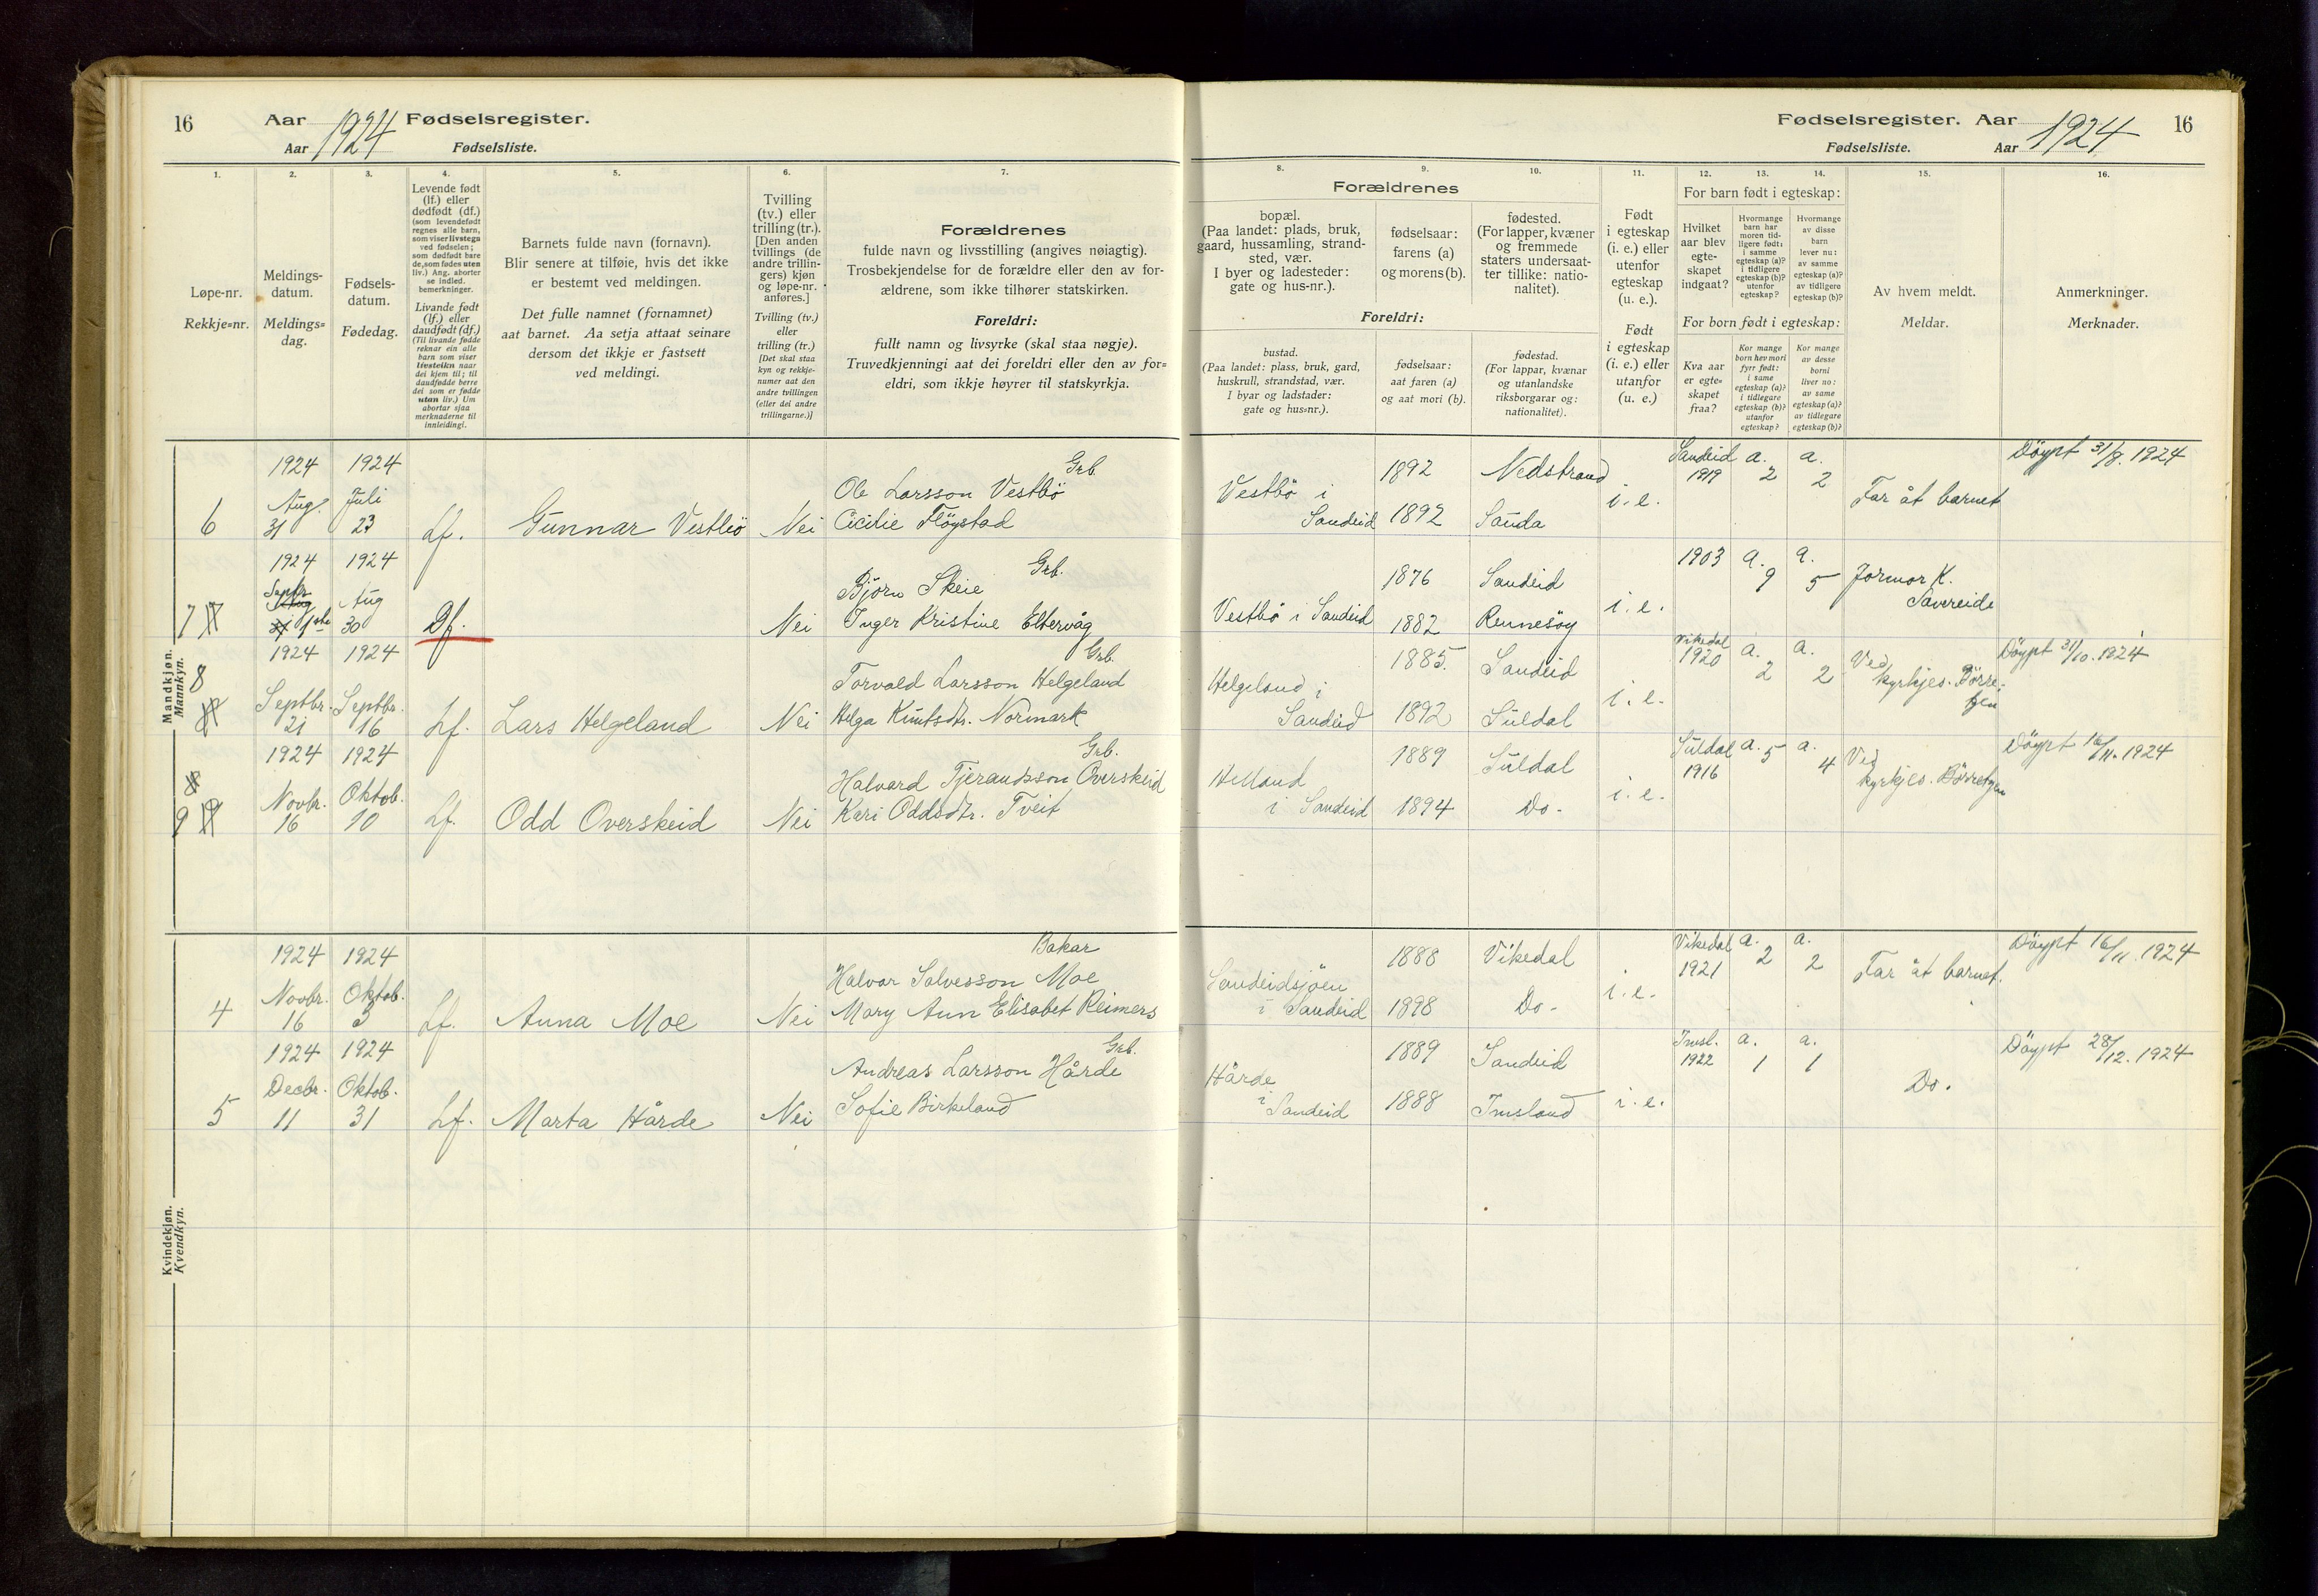 16 Aar 1924 Fødselsregister.
Aar Fødselsliste.
Fødselsregister. Aar 1924 16
Fødselsliste. Aar
1. 2. 3. 4. 5. 6. 7.
Løpe-nr.
Rekkje=nr.
Meldings-
datum.
Meldings=
dag.
Fødsels-
datum.
Fødedag.
Levende født
(lf.) eller
dødfødt (df.)
(som levendefødt
regnes alle barn,
som viser livstegn
ved fødselen;
som dødfødt bare
de, som fødes uten
liv.) Ang. aborter
se indled.
bemerkninger.
Livande født
(lf.) eller
daudfødt (df.)
(Til livande fødde
reknar ein alle
barn som viser
livsteikn naar
dei kjem til; til
daudfødde berre
dei som er fødde
utan liv.) Um
abortar sjaa
merknaderne til
innleidingi.
Barnets fulde navn (fornavn).
Blir senere at tilføie, hvis det ikke
er bestemt ved meldingen.
Det fulle namnet (fornamnet)
aat barnet. Aa setja attaat seinare
dersom det ikkje er fastsett
ved meldingi.
Tvilling
(tv.) eller
trilling (tr.).
[Den anden
tvillings (de
andre trillin-
gers) kjøn
og løpe-nr.
anføres.]
Tvilling (tv.)
eller
trilling (tr.)
[Det skal staa
kyn og rekkje-
numer aat den
andre tvillingen
(eller dei andre
trillingarne.)]
Forældrenes
fulde navn og livsstilling (angives nøiagtig).
Trosbekjendelse for de forældre eller den av for-
ældrene, som ikke tilhører statskirken.
Foreldri:
fullt namn og livsyrke (skal staa nøgje).
Truvedkjenningi aat dei foreldri eller den av for=
eldri, som ikkje høyrer til statskyrkja.
8. 9. 10. 11. 12. 13. 14. 15. 16.
Forældrenes
bopæl.
(Paa landet: plads, bruk,
gaard, hussamling, strand-
sted, vær.
I byer og ladesteder:
gate og hus-nr.).
fødselsaar:
farens (a)
og morens (b).
fødested.
(For lapper, kvæner
og fremmede
staters undersaat-
ter tillike: natio-
nalitet).
Foreldri:
bustad.
(Paa landet: plass, bruk, gard,
huskrull, strandstad, vær.
I byar og ladstader:
gate og hus=nr.).
fødselsaar:
aat faren (a)
og aat mori (b).
fødestad.
(For lappar, kvænar
og utanlandske
riksborgarar og:
nationalitet).
Født
i egteskap
(i. e.) eller
utenfor
egteskap
(u. e.).
Født
i egteskap
(i. e.) eller
utanfor
(u. e.)
For barn født i egteskap:
Hvilket
aar blev
egte-
skapet
indgaat?
Hvormange
barn har
moren tid-
ligere født:
i samme
egteskap (a)?
i tidligere
egteskap (b)?
utenfor
egteskap?
Hvormange
av disse
barn
lever nu:
av samme
egteskap (a)?
av tidligere
egteskap (b)?
For born født i egteskap:
Kva aar
er egte-
skapet
fraa?
Kor mange
born hev mori
fyrr født:
i same
egteskap (a)?
i tidlegare
egteskap (b)?
utanfor
egteskap?
Kor mange
av desse
borni
liver no:
av same
egteskap (a)?
av tidlegare
egteskap (b)?
Av hvem meldt.
Meldar.
Anmerkninger.
Merknader.
Mandkjøn.
Mannkyn.
1924 1924 Grb. Sandeid a. a. Döypt 31/8. 1924
Aug. Juli Ole Larsson Vestbö Vestbö i 1892 Nedstrand 1919 2 2 Far åt barnet
6 31 23 Lf. Gunnar Vestbö Nei Cicilie Flöystad Sandeid 1892 Sauda i. e.
1924 1924 Grb. 1903 a. a.
Septbr. Aug Björn Skeie 1876 Sandeid 9 5 Jormor K.
7 1ste 30 Df. Nei Inger Kristine Eltervåg Vestbö i Sandeid 1882 Rennesöy i. e. Saureide
1924 1924 Grb. Vikedal a. a. Döypt 31/10. 1924
8 Septbr. Septbr. Torvald Larsson Helgeland Helgeland i 1885. Sandeid 1920 2 2 Ved
21 16 Lf. Lars Helgeland Nei Helga Knutsdtr. Normark Sandeid 1892 Suldal i. e. kyrkjes. Börre-
tzen
1924 1924 Grb. Suldal a. 5 a. 4 Döypt 16/11. 1924
Novbr. Oktob. Halvard Tjerandsson Overskeid Helland 1889 Suldal 1916 Ved
9 16 10 Lf. Odd Overskeid Nei Kari Oddsdtr. Tveit i Sandeid 1894 Do- i. e. kyrkjes. Börretzen
Kvindekjøn.
Kvendkyn.
1924 1924 Bakar Vikedal a. a. Döypt 16/11. 1924
Novbr. Oktob. Halvor Salvesson Moe Sandeidsjöen 1888 Vikedal 1921 2 2 Far åt barnet.
4 16 3 Lf. Anna Moe Nei Mary Ann Elisabet Reimers i Sandeid 1898 Do- i. e.
1924 1924 Grb. Imsl. a. a. Döypt 28/12. 1924
Decbr. Oktob. Andreas Larsson Hårde Hårde 1889 Sandeid 1922 1 1 Do.
5 11 31 Lf. Marta Hårde Nei Sofie Birkeland i Sandeid 1888 Imsland i. e.